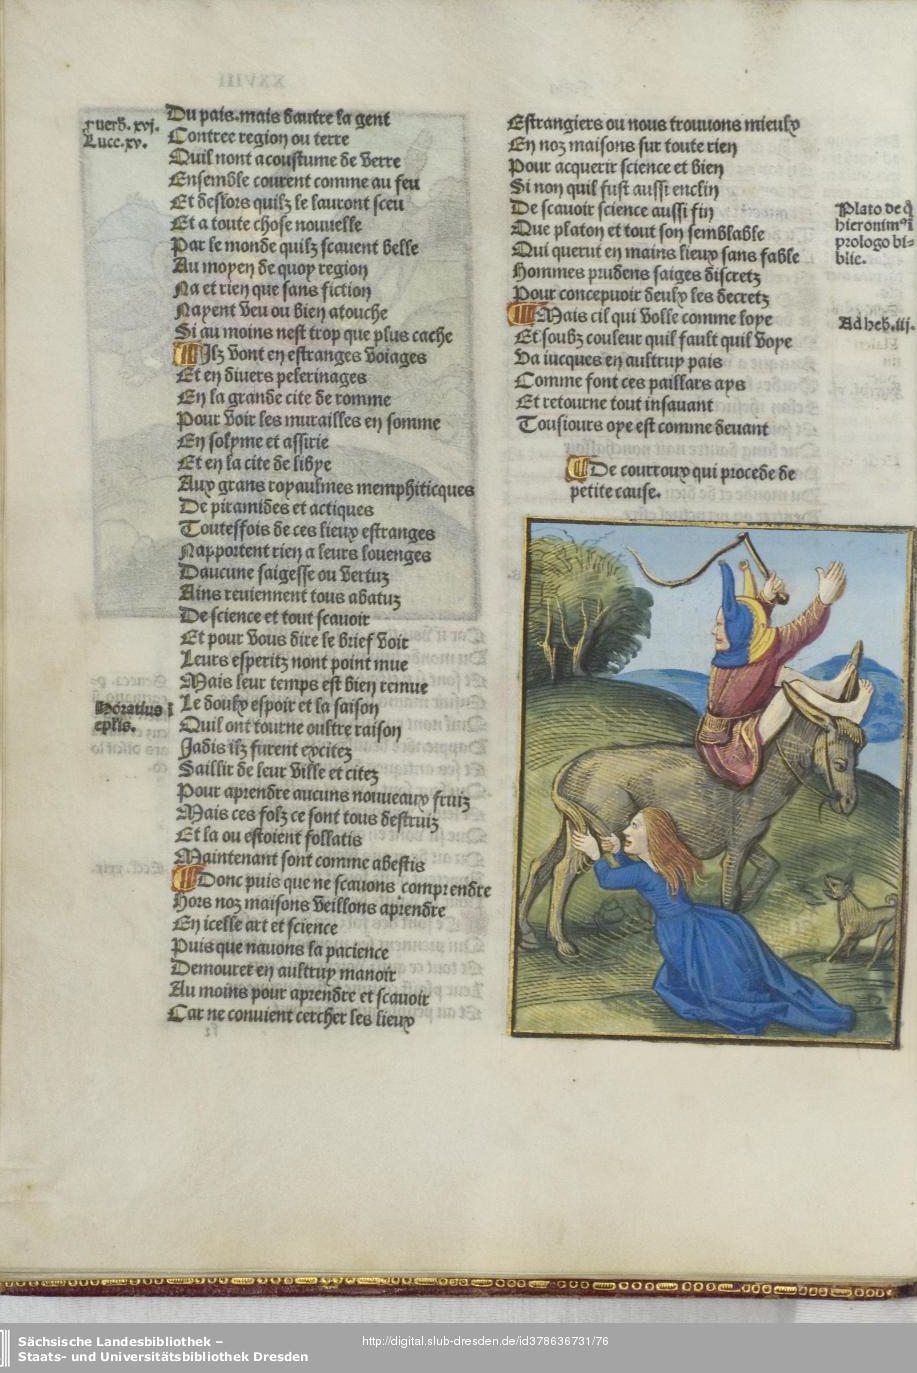 XXVIII
prouerb. xvj.
Lucc. xv.
Du pais. mais dautre la gent
Contree region ou terre
Quil nont acoustume de verre
Ensemble courent comme au feu
Et deslors quilz le lauront sceu
Et a toute chose nouuelle
Par le monde quilz scauent belle
Au moyen de quoy region
Na et rien que sans fiction
Nayent veu ou bien atouche
Si au moins nest trop que plus cache
Ilz vont en estranges voiages
Et en diuers pelerinages
En la grande cite de romme
Pour voir les murailles en somme
En solyme et assirie
Et en la cite de libye
Aux grans royaulmes memphiticques
De piramides et actiques
Toutesfois de ces lieux estranges
Napportent rien a leurs louenges
Daucune saigesse ou vertuz
Ains reuiennent tous abatuz
De science et tout scauoir
Et pour vous dire le brief voir
Leurs esperitz nont point mue
Mais leur temps est bien remue
Horatius i
eplis.
Le doulx espoir et la saison
Quil ont tourne oultre raison
Jadis ilz furent excitez
Saillir de leur ville et citez
Pour aprendre aucuns nouueaux fruiz
Mais ces folz ce sont tous destruiz
Et la ou estoient follatis
Maintenant sont comme abestis
Donc puis que ne scauons comprendre
Hors noz maisons veillons aprendre
En icelle art et science
Puis que nauons la pacience
Demourer en aultruy manoir
Au moins pour aprendre et scauoir
Car ne conuient cercher les lieux
Estrangiers ou nous trouuons mieulx
En noz maisons sur toute rien
Pour acquerir science et bien
Si non quil fust aussi enclin
De scauoir science aussi fin
Que platon et tout son semblable
Qui querut en mains lieux sans fable
Hommes prudens saiges discretz
Pour concepuoir deulx les decretz
Plato de q̄
hieronim9 ī
prologo bi-
blie.
Mais cil qui volle comme loye
Et soubz couleur quil fault quil voye
Va iucques en aultruy pais
Comme font ces paillars ays
Et retourne tout insauant
Tousiours oye est comme deuant
Ad heb. iij.
De courroux qui procede de
petite cause.
Sächsische Landesbibliothek –
Staats- und Universitätsbibliothek Dresden
http://digital.slub-dresden.de/id378636731/76